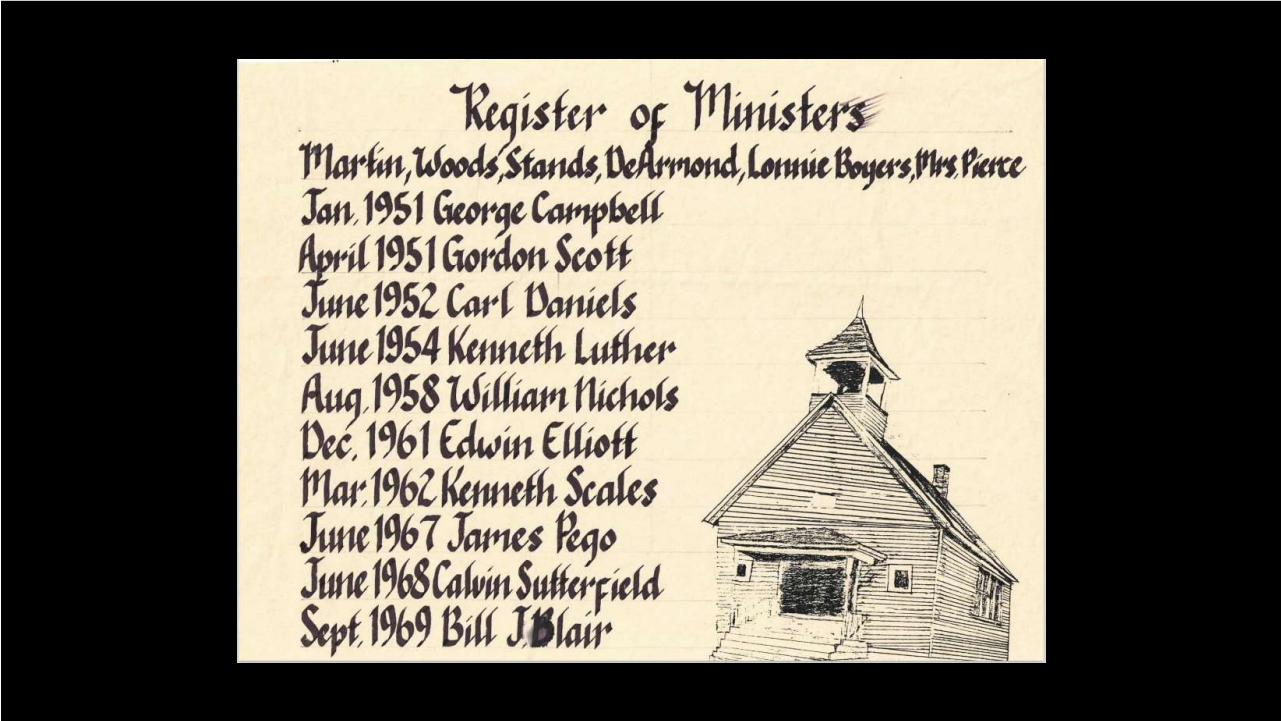 Register of Ministers
Martin, Woods, Stands, DeArmond, Lonnie Boyers, Mrs. Pierce
Jan. 1951 George Campbell
April 1951 Gordon Scott
June 1952 Carl Daniels
June 1954 Kenneth Luther
Aug. 1958 William Nichols
Dec. 1961 Edwin Elliott
Mar. 1962 Kenneth Scales
June 1967 James Pego
June 1968 Calvin Sutterfield
Sept. 1969 Bill J. Blair